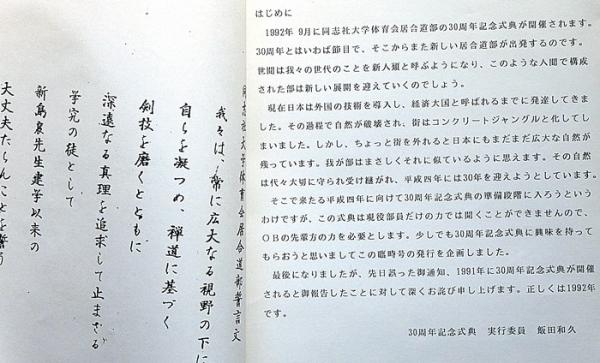 同志社大学体育会居合道部誓言文
我々は、常に広大なる視野の下に
自らを凝つめ、禅道に基づく
剣技を磨くとともに
深遠なる真理を追求して止まざる
学究の徒として
新島襄先生建学以来の
大丈夫たらんことを誓う
はじめに
1992年 9月に同志社大学体育会居合道部の30周年記念式典が開催されます。
30周年とはいわば節目で、そこからまた新しい居合道部が出発するのです。
世間は我々の世代のことを新人類と呼ぶようになり、このような人間で構成
された部は新しい展開を迎えていくのでしょう。
現在日本は外国の技術を導入し、経済大国と呼ばれるまでに発達してきま
した。その過程で自然が破壊され、街はコンクリートジャングルと化してし
まいました。しかし、ちょっと街を外れると日本にもまだまだ広大な自然が
残っています。我が部はまさしくそれに似ているように思えます。その自然
は代々大切に守られ受け継がれ、平成四年には30年を迎えようとしています。
そこで来たる平成四年に向けて30周年式典の準備段階に入ろうという
わけですが、この式典は現役部員だけの力では開くことができませんので、
ＯＢの先輩方の力を必要とします。少しでも30周年記念式典に興味を持って
もらおうと思いましてこの臨時号の発行を企画しました。
最後になりましたが、先日誤った御通知、1991年に30周年記念式典が開催
されると御報告したことに対して深くお詫び申し上げます。正しくは1992年
です。
30周年記念式典 実行委員 飯田和久